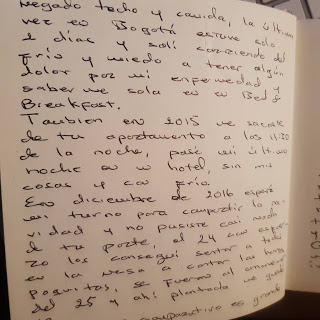 negado techo y comida, la última
vez en Bogotá estuve solo
2 días y salí corriendo del
frío y miedo a tener algún
dolor por mi enfermedad y
saberme sola en un Bed &
Breakfast.
Tambien en 2015 me sacaste
de tu apartamento a las 11:20
de la noche, pasé mi último
noche en un hotel, sin mis
cosas y con frío.
En diciembre de 2016 esperé
mi turno para compartir la na
vidad y no pusiste casi nada
de tu parte, el 24 con esper
zo los conseguí sentar a todos
en la mesa a contar los
poquitos, se fueron al amanecer
del 25 y ahí plantada me quedé
comparativo es grande